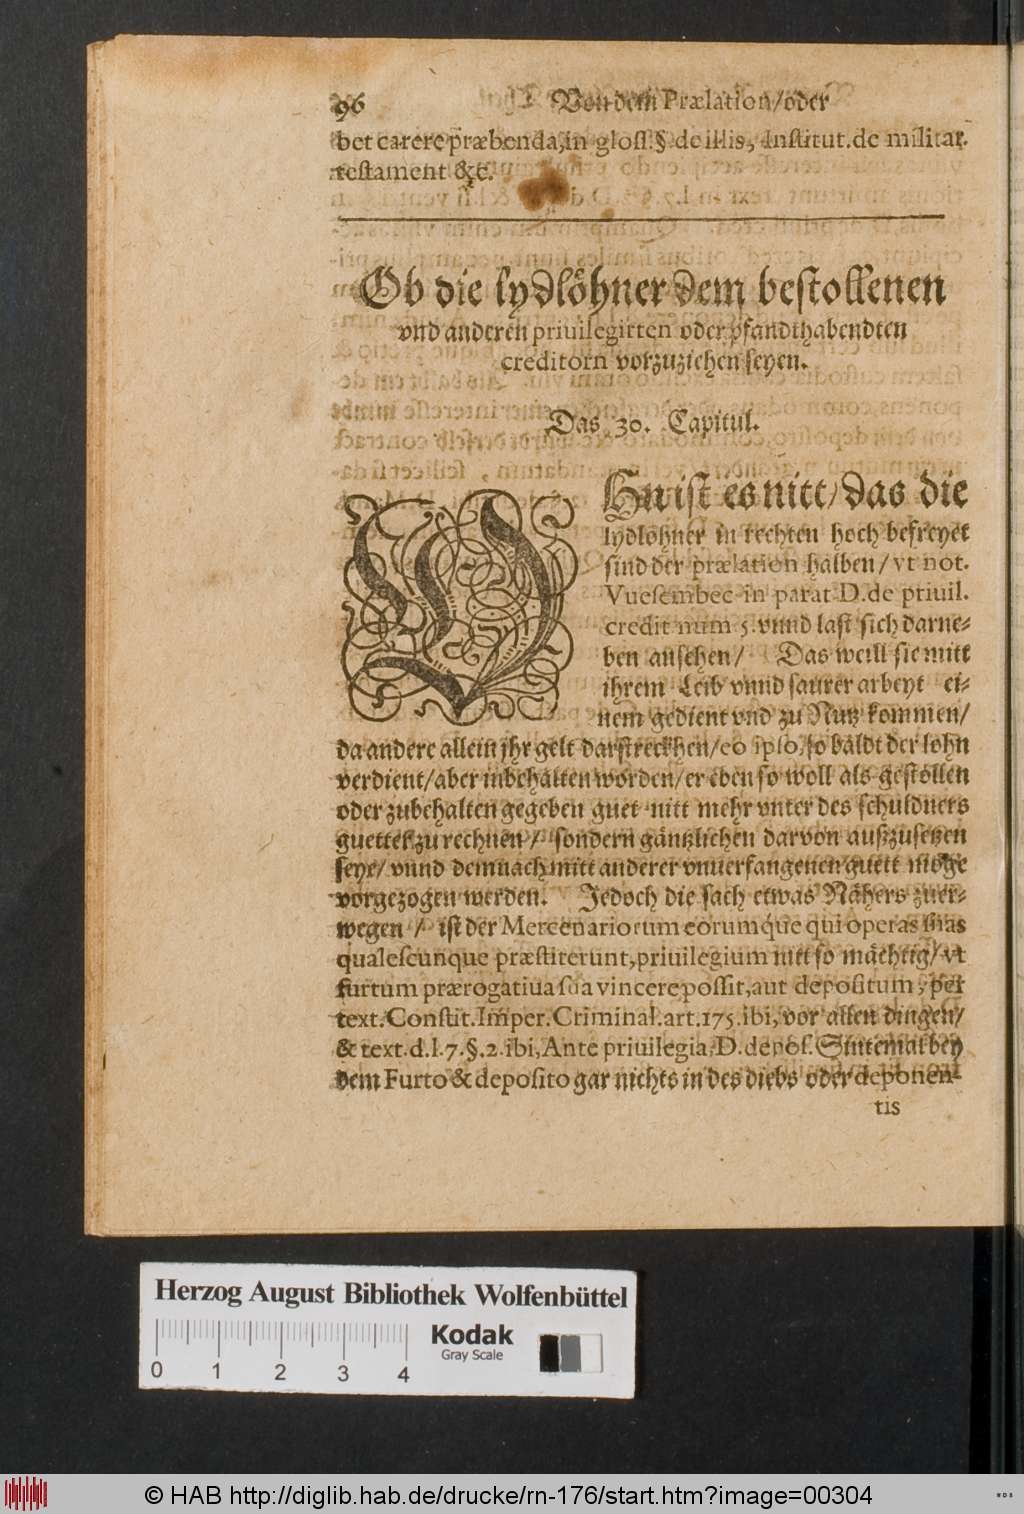 96 Von dem Prælation/oder
bet carere præbenda,in gloss.§ de illis, Institut.de militar.
testament &c.
Ob die lydlöhner dem bestollenen
vnd anderen priuilegirten oder pfandthabendten
creditorn vorzuziehen seyen.
Das 30. Capitul.
Nu ist es nitt/das die
lydlöhner in rechten hoch befreyet
sind der prælation halben/vt not.
Vuesembec in parat D.de priuil.
credit num 5.vnnd last sich darne-
ben ansehen/ Das weill sie mitt
ihrem Leib vnnd saurer arbeyt ei-
nem gedient vnd zu Nutz kommen/
da andere allein jhr gelt darstreckhen/eo ipso,so baldt der lohn
verdient/aber inbehalten worden/er eben so woll als gestollen
oder zubehalten gegeben guet nitt mehr vnter des schuldners
guetter zu rechnen/ sondern gäntzlichen darvon auszusetzen
seye/ vnnd demnach mitt anderer vnuerfangenen guett möge
vorgezogen werden. Jedoch die sach etwas Nähers zuer-
wegen/ ist der Mercenariorum eorumq́ue qui operas suas
qualescunque præstiterunt,priuilegium nitt so mächtig/vt
furtum prærogatiua sua vincere possit,aut depositum, per
text.Constit.Imper.Criminal.art.175.ibi,vor allen dingen/
& text.d.l.7.§.2.ibi,Ante priuilegia,D.depos.Sintemal bey
dem Furto & deposito gar nichts in des diebs oder deponen-
tis
Herzog August Bibliothek Wolfenbüttel
0 1 2 3 4
Kodak
Gray Scale
© HAB http://diglib.hab.de/drucke/rn-176/start.htm?image=00304